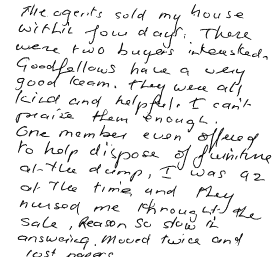 The agents sold my house
within four days. There
were two buyers interested.
Goodfellows have a very
good team. They were all
kind and helpful. I can't
praise them enough.
One member even offered
to help dispose of furniture
at the dump, I was 92
at the time and they
nursed me through the
sale, Reason so slow in
answering, Moved twice and
lost papers